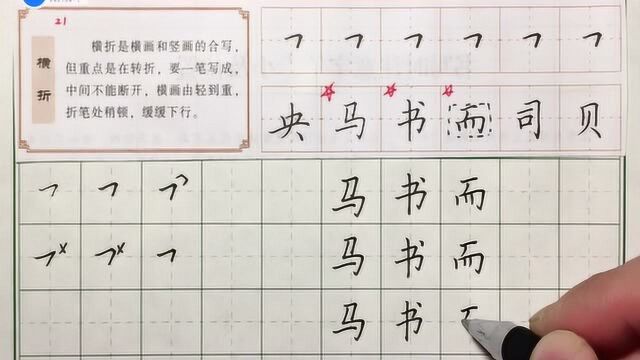 21
横折
横折是横画和竖画的合写,
但重点是在转折,要一笔写成,
中间不能断开,横画由轻到重,
折笔处稍顿,缓缓下行。
央 马 书 而 司 贝
马 书 而
马 书 而
马 书